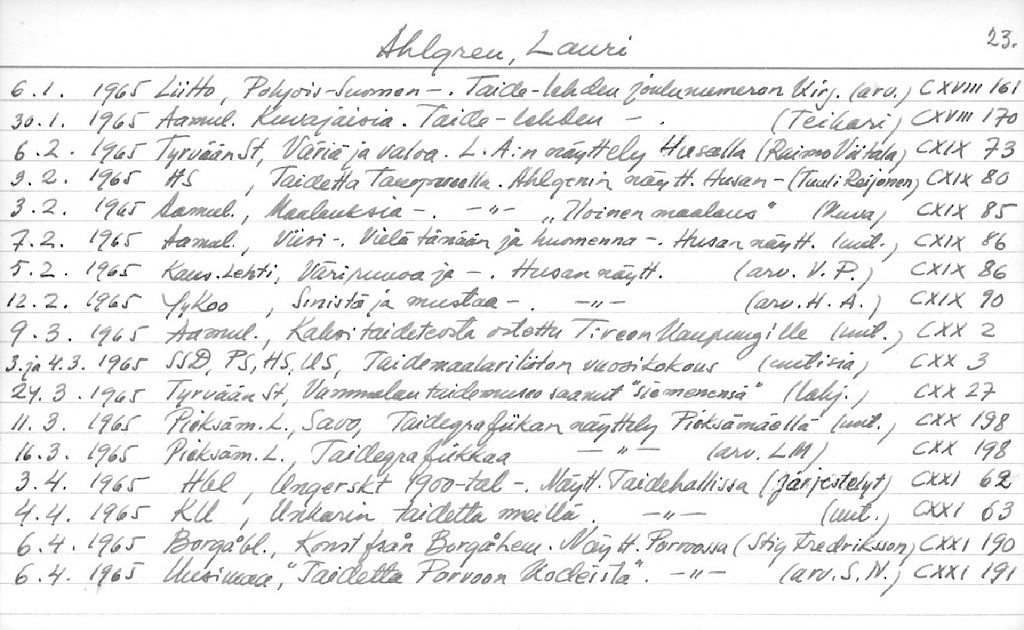 Ahlgren, Lauri
23.
6.1. 1965 Liitto, Pohjois-Suomen -. Taide-lehden joulunumeron Kirj. (arv.) CXVIII 161
30.1. 1965 Aamul. Kuvajaisia. Taide-lehden - . (Teikari) CXVIII 170
6.2. 1965 Tyrvään St, Väriä ja valoa. L. A:n näyttely Husalla (Raimo Viitala) CXIX 73
3.2. 1965 HS , Taidetta Tampereella. Ahlgrenin näytt. Husan - (Tuuli Reijonen) CXIX 80
3.2. 1965 Aamul., Maalauksia -. -"- „Iloinen maalaus" (Kuva) CXIX 85
7.2. 1965 Aamul., Viiri -. Vielä tänään ja huomenna -. Husan näytt. (uut.) CXIX 86
5.2. 1965 Kans. Lehti, Värirunoa ja -. Husan näytt. (arv. V. P.) CXIX 86
12.2. 1965 YyKoo , Sinistä ja mustaa -. -"- (arv. H. A.) CXIX 90
9.3. 1965 Aamul., Kaksi taideteosta ostettu Tireen Kaupungille (uut.) CXX 2
3. ja 4.3. 1965 SSD, PS, HS, US, Taidemaalariliiton vuosikokous (uutisia) CXX 3
24.3. 1965 Tyrvään St, Vammalan taidemuseo saanut "siemenensä" (Lahj.) CXX 27
11.3. 1965 Pieksäm. L., Savo, Taidegrafiikan näyttely Pieksämäellä (uut.) CXX 198
16.3. 1965 Pieksäm. L., Taidegrafiikkaa -"- (arv. LM) CXX 198
3.4. 1965 Hbl , Ungerskt 1900-tal -. Näytt. Taidehallissa (järjestelyt) CXXI 62
4.4. 1965 KU , Unkarin taidetta meillä. -"- (uut.) CXXI 63
6.4. 1965 Borgåbl., Konst från Borgåhem. Näytt. Porvoossa (Stig Fredriksson) CXXI 190
6.4. 1965 Uusimaa, "Taidetta Porvoon Kodeista". -"- (arv. S. N.) CXXI 191